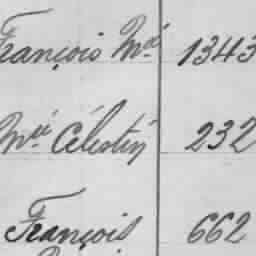 François Mⁱᵉ 1343
Mⁱᵉ Célestin 232
François 662